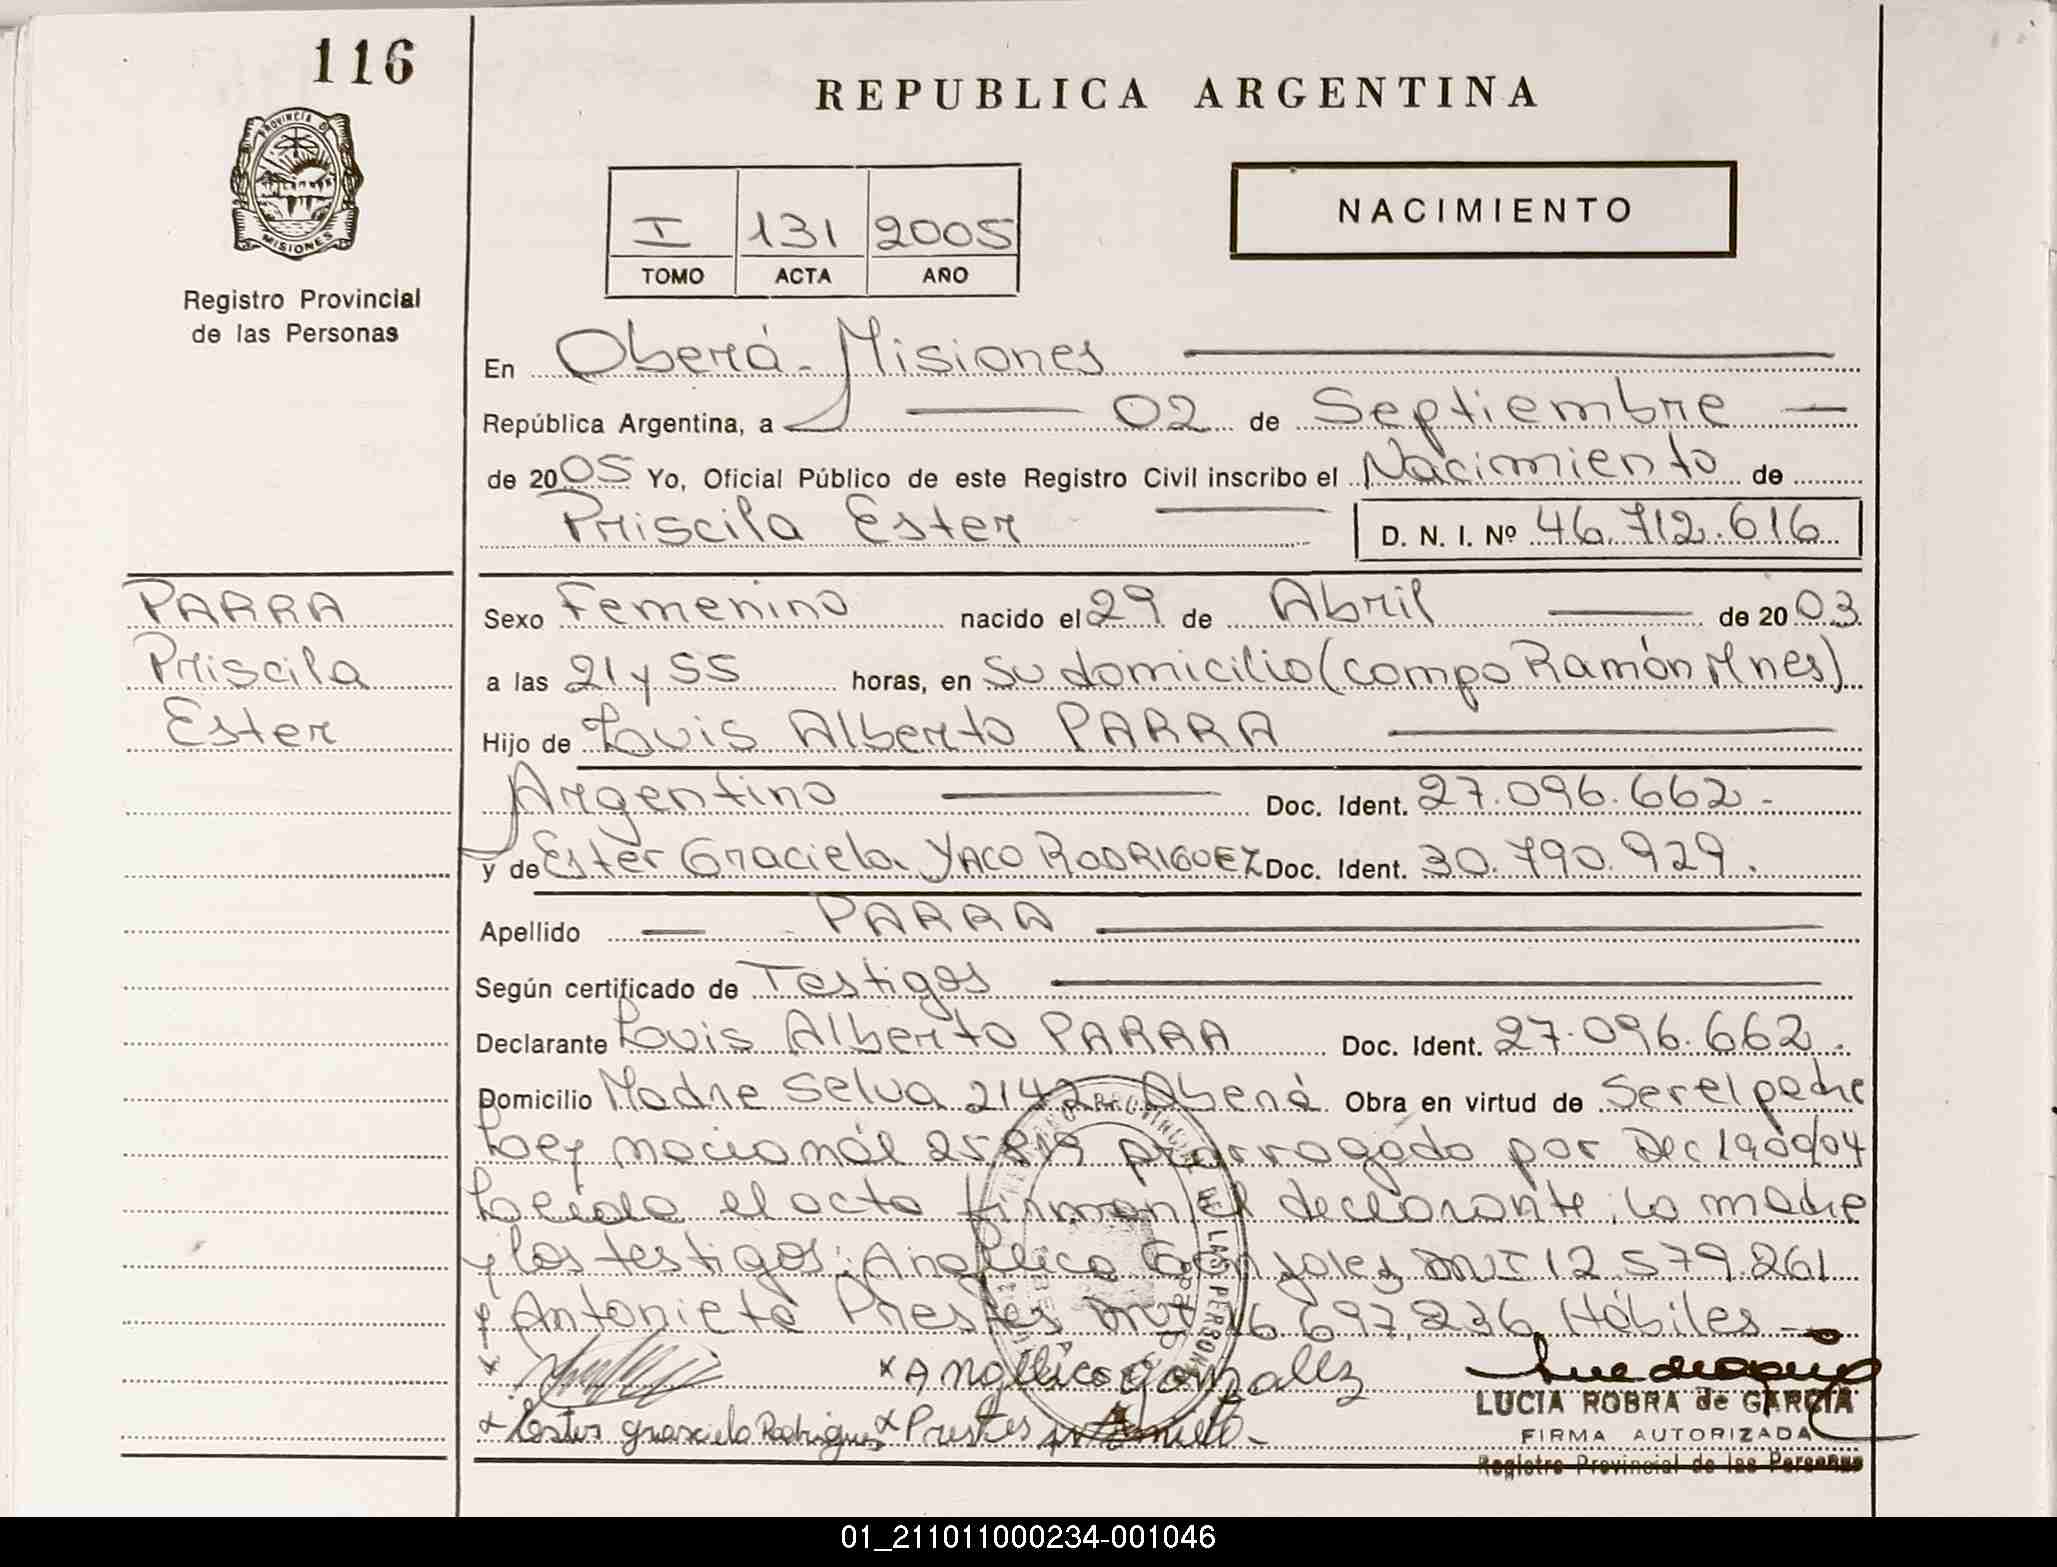 116
REPUBLICA ARGENTINA
PROVINCIA DE
MISIONES
Registro Provincial
de las Personas
I 131 2005
TOMO ACTA AÑO
NACIMIENTO
En Oberá - Misiones
República Argentina, a 02 de Septiembre
de 2005 Yo, Oficial Público de este Registro Civil inscribo el Nacimiento de
Priscila Ester D. N. I. Nº 46.712.616
PARRA
Priscila
Ester
Sexo Femenino nacido el 29 de Abril de 2003
a las 21 y 55 horas, en su domicilio (campo Ramón Mnes)
Hijo de Luis Alberto PARRA
Argentino Doc. Ident. 27.096.662.-
y de Ester Graciela YACO RODRIGUEZ Doc. Ident. 30.790.929.
Apellido PARRA
Según certificado de Testigos
Declarante Luis Alberto PARRA Doc. Ident. 27.096.662.
Domicilio Madre Selva 2142 Oberá Obra en virtud de Ser el padre
Ley nacional 25.819 prorrogado por Dec 1900/04
Leida el acta firman el declarante, la madre
y los testigos: Angélica Gonzalez DNI 12.579.261
y Antonieta Prestes DNI 16.697.236 Hábiles -
x x Angelica gonzalez
x Ester graciela Rodrigues x Prestes Antonieta
LUCIA ROBRA de GARCIA
FIRMA AUTORIZADA
Registro Provincial de las Personas
01_211011000234-001046